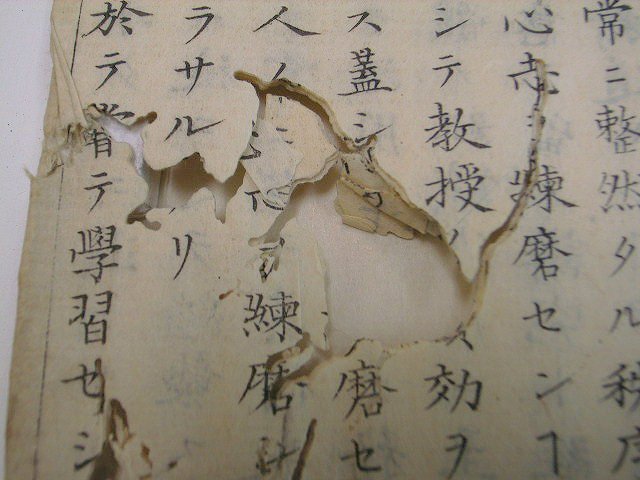 常ニ整然タル秩序
心志ヲ練磨センコ
シテ教授ノ 効ヲ
ス蓋シ 磨セ
人ノ 心ヲ練磨
ラサル リ
於テ テ學習セシ